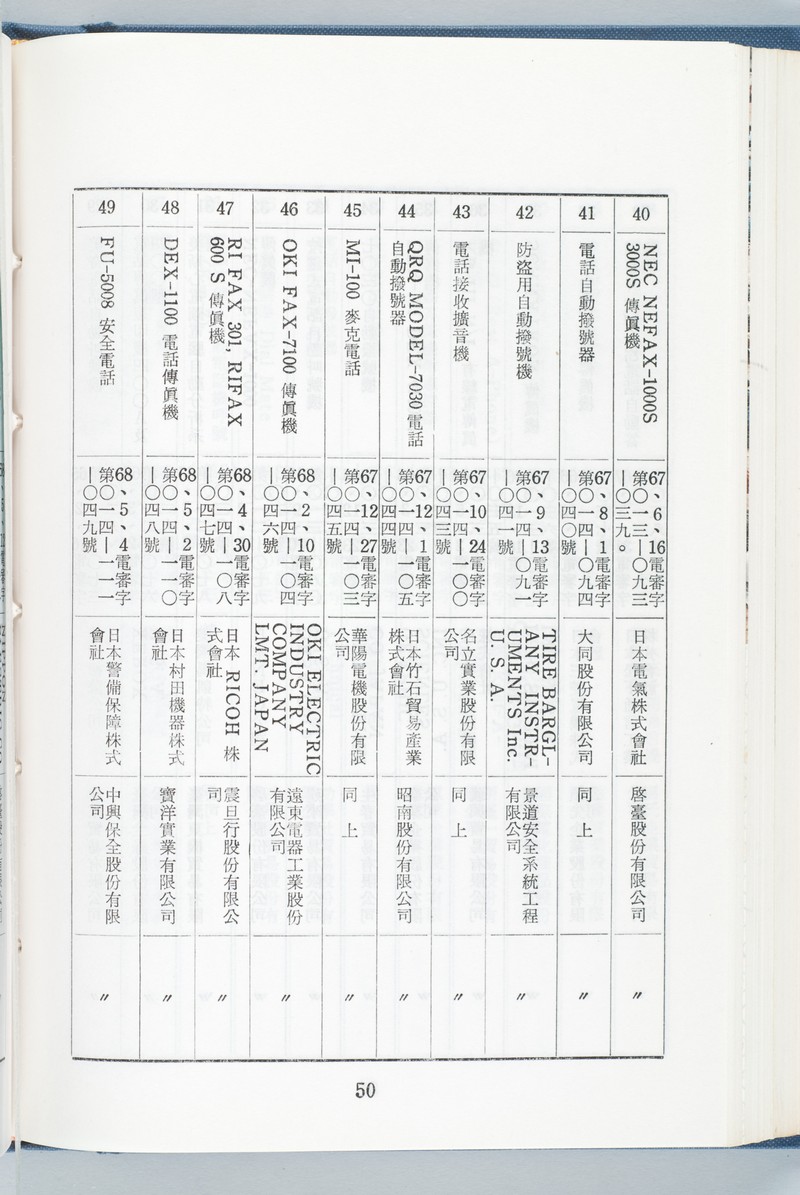 40
NEC NEFAX-1000S
3000S 傳眞機
67、6、16電審字
第〇一三—〇九三
—〇三九。
日本電氣株式會社
啓臺股份有限公司
〃
41
電話自動撥號器
67、8、1電審字
第〇一四—〇九四
—〇四〇號
大同股份有限公司
同上
〃
42
防盜用自動撥號機
67、9、13電審字
第〇一四—〇九一
—〇四一號
TIRE BARGL-
ANY INSTR-
UMENTS Inc.
U. S. A.
景道安全系統工程
有限公司
〃
43
電話接收擴音機
67、10、24電審字
第〇一四—一〇〇
—〇四三號
名立實業股份有限
公司
同上
〃
44
QRQ MODEL-7030 電話
自動撥號器
67、12、1電審字
第〇一四—一〇五
—〇四四號
日本竹石貿易產業
株式會社
昭南股份有限公司
〃
45
MI-100 麥克電話
67、12、27電審字
第〇一四—一〇三
—〇四五號
華陽電機股份有限
公司
同上
〃
46
OKI FAX-7100 傳眞機
68、2、10電審字
第〇一四—一〇四
—〇四六號
OKI ELECTRIC
INDUSTRY
COMPANY
LMT. JAPAN
遠東電器工業股份
有限公司
〃
47
RI FAX 301, RIFAX
600 S 傳眞機
68、4、30電審字
第〇一四—一〇八
—〇四七號
日本 RICOH 株
式會社
震旦行股份有限公
司
〃
48
DEX-1100 電話傳眞機
68、5、2電審字
第〇一四—一一〇
—〇四八號
日本村田機器株式
會社
寶洋實業有限公司
〃
49
FU-5008 安全電話
68、5、4電審字
第〇一四—一一一
—〇四九號
日本警備保障株式
會社
中興保全股份有限
公司
〃
50